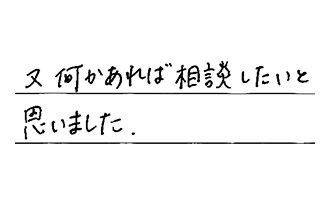 又何かあれば相談したいと
思いました.